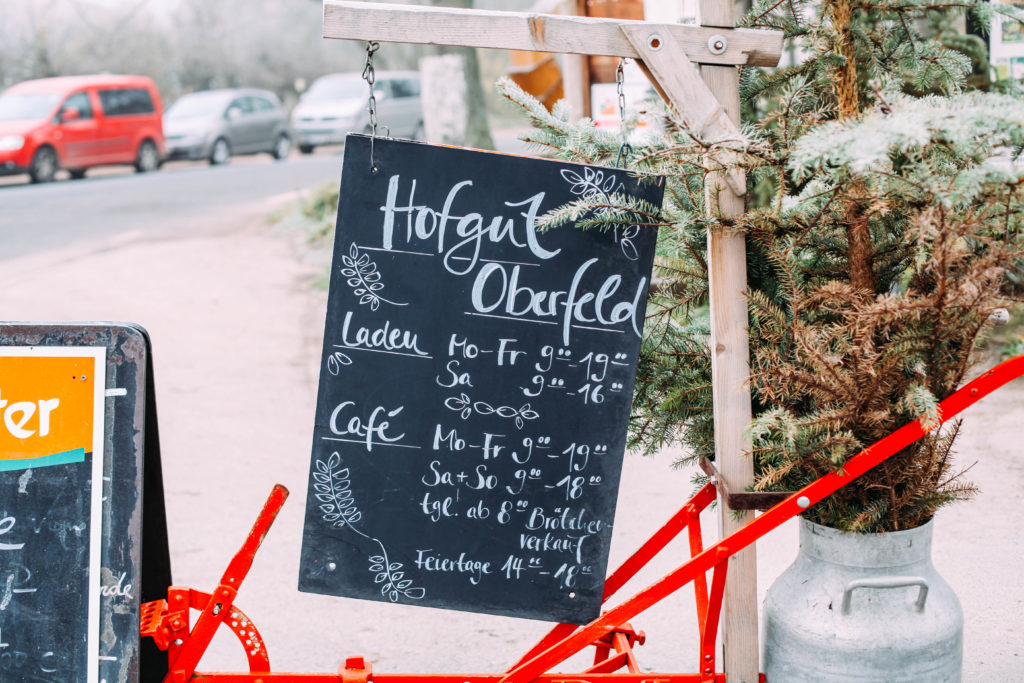 Hofgut
Oberfeld
Laden Mo-Fr 9⁰⁰-19⁰⁰
Sa 9⁰⁰-16⁰⁰
Café Mo-Fr 9⁰⁰-19⁰⁰
Sa+So 9⁰⁰-18⁰⁰
tgl. ab 8⁰⁰ Brötchen-
verkauf
Feiertage 14⁰⁰-18⁰⁰
ter